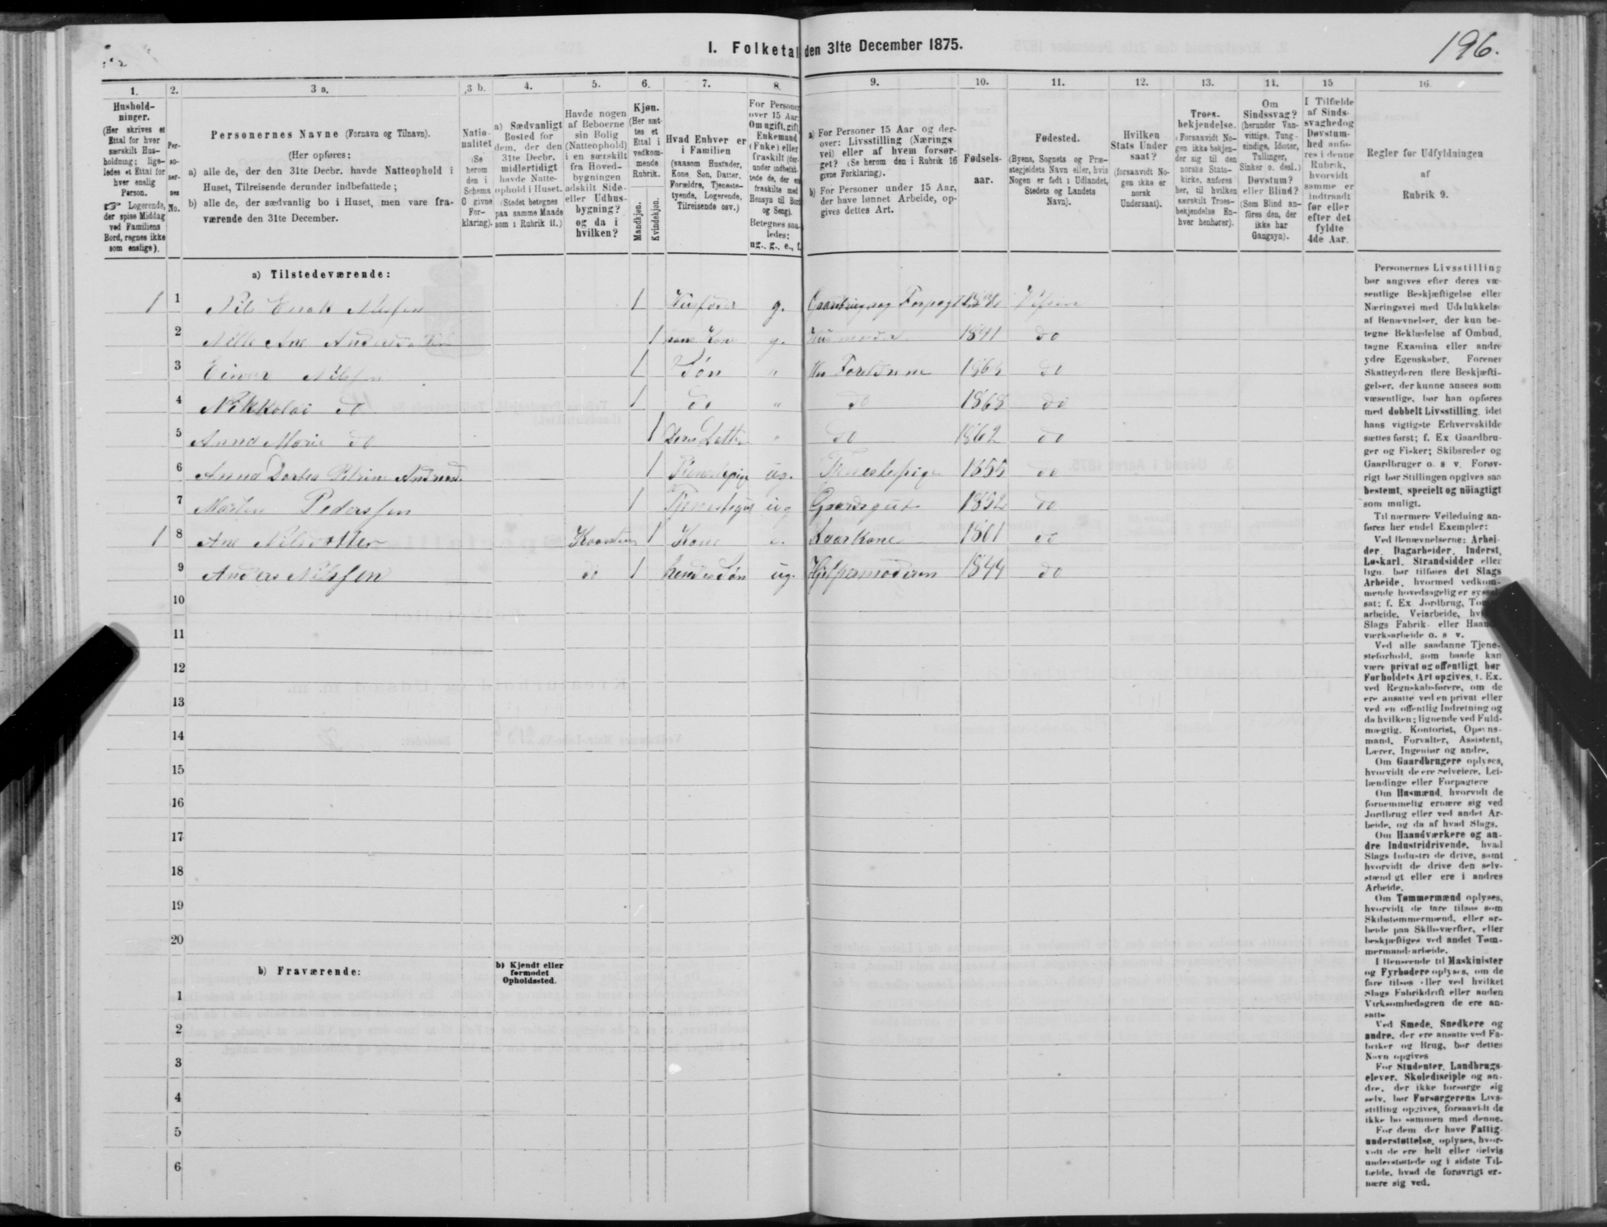 196.
I. Folketal den 31te December 1875.
1. 2. 3 a. 3 b. 4. 5. 6. 7. 8. 9. 10. 11. 12. 13. 14. 15 16.
Hushold-
ninger.
(Her skrives et
Ettal for hver
særskilt Hus-
holdning; lige-
ledes et Ettal for
hver enslig
Person.
☞ Logerende,
der spise Middag
ved Familiens
Bord, regnes ikke
som enslige).
Per-
so-
ner-
nes
No.
Personernes Navne (Fornavn og Tilnavn).
(Her opføres:
a) alle de, der den 31te Decbr. havde Natteophold i
Huset, Tilreisende derunder indbefattede;
b) alle de, der sædvanlig bo i Huset, men vare fra-
værende den 31te December.
Natio-
nalitet
(Se
herom
den i
Schema
O givne
For-
klaring).
a) Sædvanligt
Bosted for
dem, der den
31te Decbr.
midlertidigt
havde Natte-
ophold i Huset.
(Stedet betegnes
paa samme Maade
som i Rubrik 11.)
Havde nogen
af Beboerne
sin Bolig
(Natteophold)
i en særskilt
fra Hoved-
bygningen
adskilt Side-
eller Udhus-
bygning?
og da i
hvilken?
Kjøn.
(Her sæt-
tes et
Ettal i
vedkom-
mende
Rubrik.
Mandkjøn.
Kvindekjøn.
Hvad Enhver er
i Familien
(saasom Husfader,
Kone, Søn, Datter,
Forældre, Tjeneste-
tyende, Logerende,
Tilreisende osv.)
For Personer
over 15 Aar:
Om ugift, gift,
Enkemand
(Enke) eller
fraskilt (der-
under indbefat-
tede de, der ere
fraskilte med
Hensyn til Bord
og Seng).
Betegnes saa-
ledes:
ug., g., e., f.
a) For Personer 15 Aar og der-
over: Livsstilling (Nærings
vei) eller af hvem forsør-
get? (Se herom den i Rubrik 16
givne Forklaring).
b) For Personer under 15 Aar,
der have lønnet Arbeide, op-
gives dettes Art.
Fødsels-
aar.
Fødested.
(Byens, Sognets og Præ-
stegjeldets Navn eller, hvis
Nogen er født i Udlandet,
Stedets og Landets
Navn).
Hvilken
Stats Under
saat?
(forsaavidt No-
gen ikke er
norsk
Undersaat).
Troes-
bekjendelse.
(Forsaavidt No-
gen ikke bekjen-
der sig til den
norske Stats-
kirke, anføres
her, til hvilken
særskilt Troes-
bekjendelse En-
hver henhører).
Om
Sindssvag?
(herunder Van-
vittige, Tung-
sindige, Idioter,
Tullinger,
Sinker o. desl.)
Døvstum?
eller Blind?
(Som Blind an-
føres den, der
ikke har
Gangsyn).
I Tilfælde
af Sinds-
svaghed og
Døvstum-
hed anfø-
res i denne
Rubrik,
hvorvidt
samme er
indtraadt
før eller
efter det
fyldte
4de Aar.
Regler for Udfyldningen
af
Rubrik 9.
a) Tilstedeværende:
1 1 Nils Enok Nilssen 1 Husfader g. Gaardbruger og Forpagter
2 1 g. 1841 do
3 Einar Nilssen 1 Søn " Forældrene do
4 Nikkolai do 1 do " do 1868 do
5 Anna Marie do 1 do 1862 do
6 Anna Dortea Petrine 1 ug. Tjenestepige 1855 do
7 Morten Pederssen 1 ug Gaardsgut 1852 do
1 8 Ane Nilsdatter 1 Kone Kaarkone 1801 do
9 Anders Nilssen do 1 hendes Søn ug. Hjelper moderen 1844 do
10
11
12
13
14
15
16
17
18
19
20
b) Fraværende:
b) Kjendt eller
formodet
Opholdssted.
1
2
3
4
5
6
Personernes Livsstilling
bør angives efter deres væ-
sentlige Beskjæftigelse eller
Næringsvei med Udelukkelse
af Benævnelser, der kun be-
tegne Beklædelse af Ombud,
tagne Examina eller andre
ydre Egenskaber. Forener
Skatteyderen flere Beskjæfti-
gelser, der kunne ansees som
væsentlige, bør han opføres
med dobbelt Livsstilling, idet
hans vigtigste Erhvervskilde
sættes først; f. Ex Gaardbru-
ger og Fisker; Skibsreder og
Gaardbruger o. s v. Forøv-
rigt bør Stillingen opgives saa
bestemt, specielt og nöiagtigt
som muligt.
Til nærmere Veiledning an-
føres her endel Exempler:
Ved Benævnelserne: Arbei-
der, Dagarbeider, Inderst,
Løskarl, Strandsidder eller
lign. bør tilføies det Slags
Arbeide, hvormed vedkom-
mende hovedsagelig er syssel-
sat; f. Ex Jordbrug, Tomt-
arbeide, Veiarbeide, hvilket
Slags Fabrik- eller Haand-
værksarbeide o. s v.
Ved alle saadanne Tjene-
steforhold, som baade kan
være privat og offentligt, bør
Forholdets Art opgives, f. Ex.
ved Regnskabsførere, om de
ere ansatte ved en privat eller
ved en offentlig Indretning og
da hvilken; lignende ved Fuld-
mægtig, Kontorist, Opsyns-
mand, Forvalter, Assistent,
Lærer, Ingeniør og andre.
Om Gaardbrugere oplyses,
hvorvidt de ere Selveiere, Lei-
lændinge eller Forpagtere
Om Husmænd, hvorvidt de
fornemmelig ernære sig ved
Jordbrug eller ved andet Ar-
beide, og da af hvad Slags.
Om Haandværkere og an-
dre Industridrivende, hvad
Slags Industri de drive, samt
hvorvidt de drive den selv-
stændigt eller ere i andres
Arbeide.
Om Tømmermænd oplyses,
hvorvidt de fare tilsøs som
Skibstømmermænd, eller ar-
beide paa Skibsværfter, eller
beskjæftiges ved andet Tøm-
mermandsarbeide.
I Henseende til Maskinister
og Fyrbødere oplyses, om de
fare tilsøs eller ved hvilket
Slags Fabrikdrift eller anden
Virksomhedsgren de ere an-
satte
Ved Smede, Snedkere og
andre, der ere ansatte ved Fa-
briker og Brug, bør dettes
Navn opgives
For Studenter, Landbrugs-
elever, Skoledisciple og an-
dre, der ikke forsørge sig
selv, bør Forsørgerens Livs-
stilling opgives, forsaavidt de
ikke bo sammen med denne.
For dem der have Fattig-
understøttelse, oplyses, hvor-
vidt de ere helt eller delvis
understøttede og i sidste Til-
fælde, hvad de forøvrigt er-
nære sig ved.